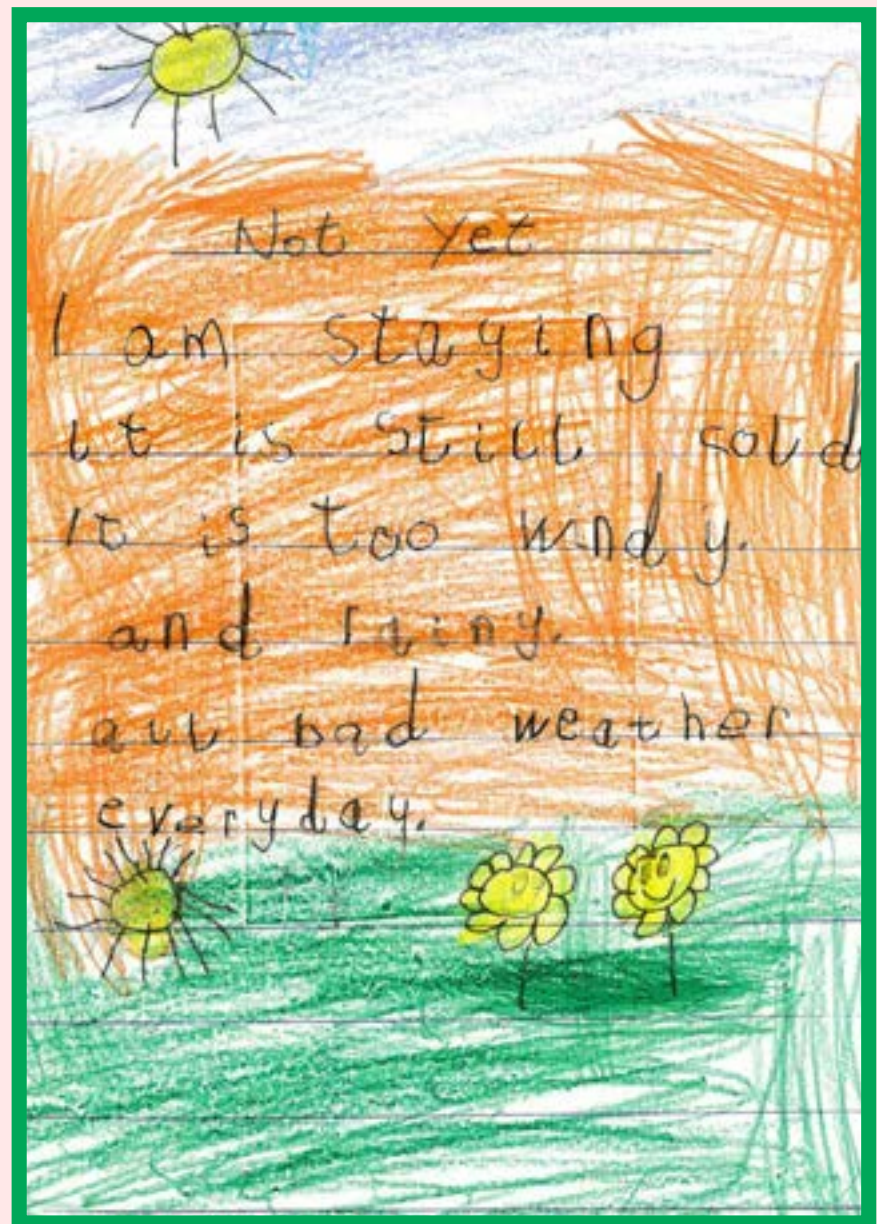 Not Yet
I am staying
it is still cold
It is too windy.
and rainy.
all bad weather
everyday.